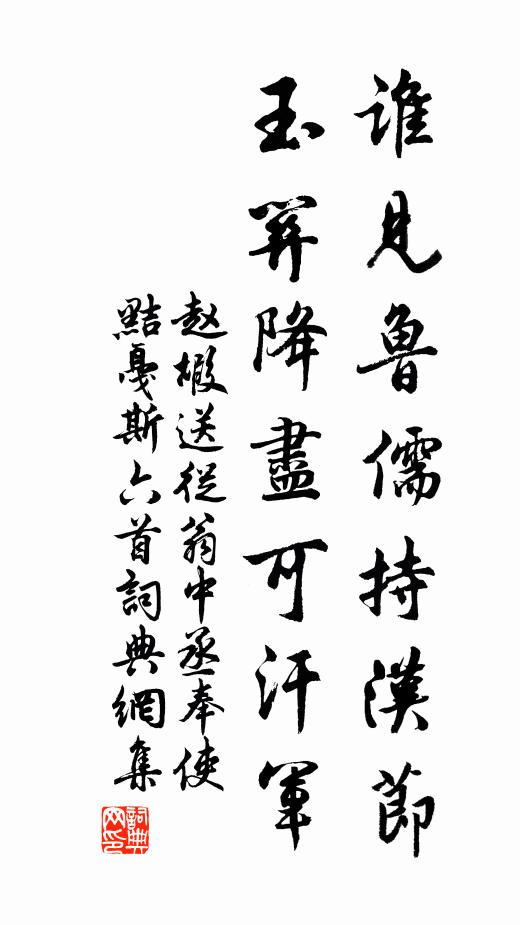 誰見魯儒持漢節
玉關降盡可汗軍
赵嘏送從翁中丞奉使
黠戛斯六首詞典網集
詞典网印